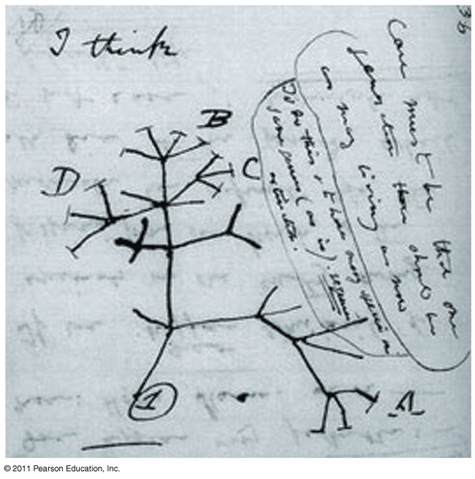 36
I think
Case must be that one
generation then should be
as many living as now
To do this & to have many species in
same genus (as is). requires
extinction.
B
C
D
A
1
© 2011 Pearson Education, Inc.